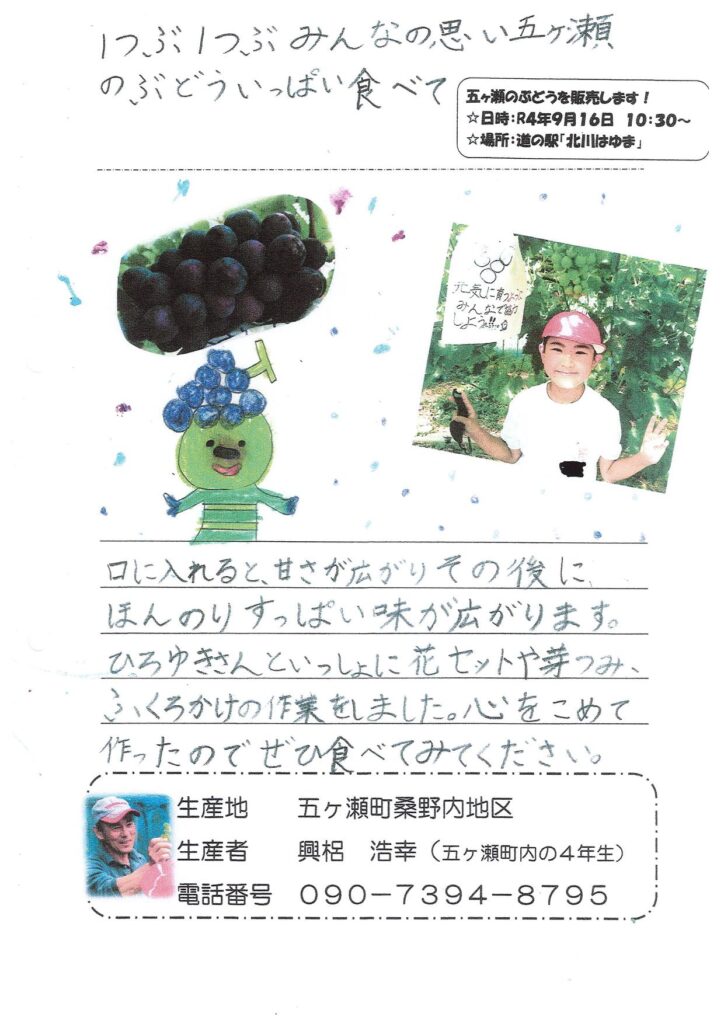 1つぶ1つぶみんなの思い五ヶ瀬
のぶどういっぱい食べて
五ヶ瀬のぶどうを販売します！
☆日時：R4年9月16日 10：30～
☆場所：道の駅「北川はゆま」
元気に育つように
みんなで協力
しよう!!
口に入れると、甘さが広がりその後に、
ほんのりすっぱい味が広がります。
ひろゆきさんといっしょに花セットや芽つみ、
ふくろかけの作業をしました。心をこめて
作ったのでぜひ食べてみてください。
生産地 五ヶ瀬町桑野内地区
生産者 興梠 浩幸（五ヶ瀬町内の４年生）
電話番号 ０９０－７３９４－８７９５